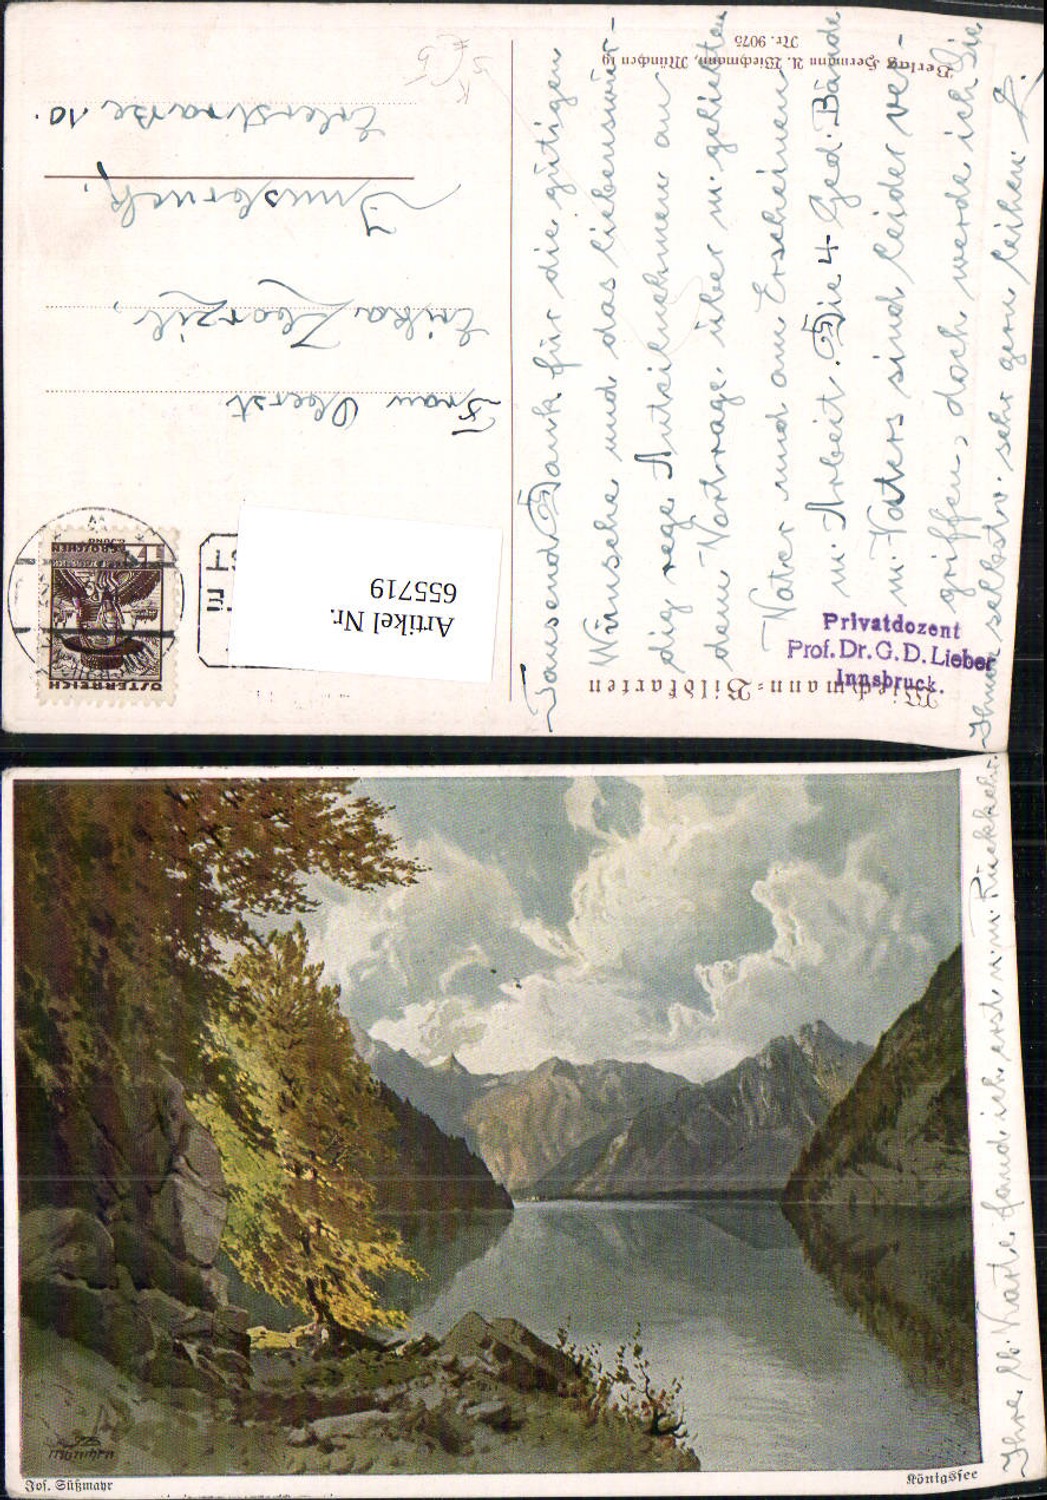 Wiechmann-Bildkarten
Frau Oberst
Erika Zborzil,
Innsbruck,
Erlerstrasse 10.
ÖSTERREICH
GROSCHEN
Artikel Nr.
655719
Verlag Hermann A. Wiechmann, München 19
Nr. 9075
Privatdozent
Prof. Dr. G. D. Lieber
Innsbruck.
Tausend Dank für die gütigen
Wünsche und das liebenswür-
dig rege Anteilnehmen an
dem Vortrage über m. geliebten
Vater und am Erscheinen
m. Arbeit. Die 4 Ged. Bände
m. Vaters sind leider ver-
griffen, doch werde ich Sie
Ihnen selbstv. sehr gern leihen.
Ihre lb. Karte fand ich erst n. m. Rückkehr.
München
Jos. Süßmayr
Königssee